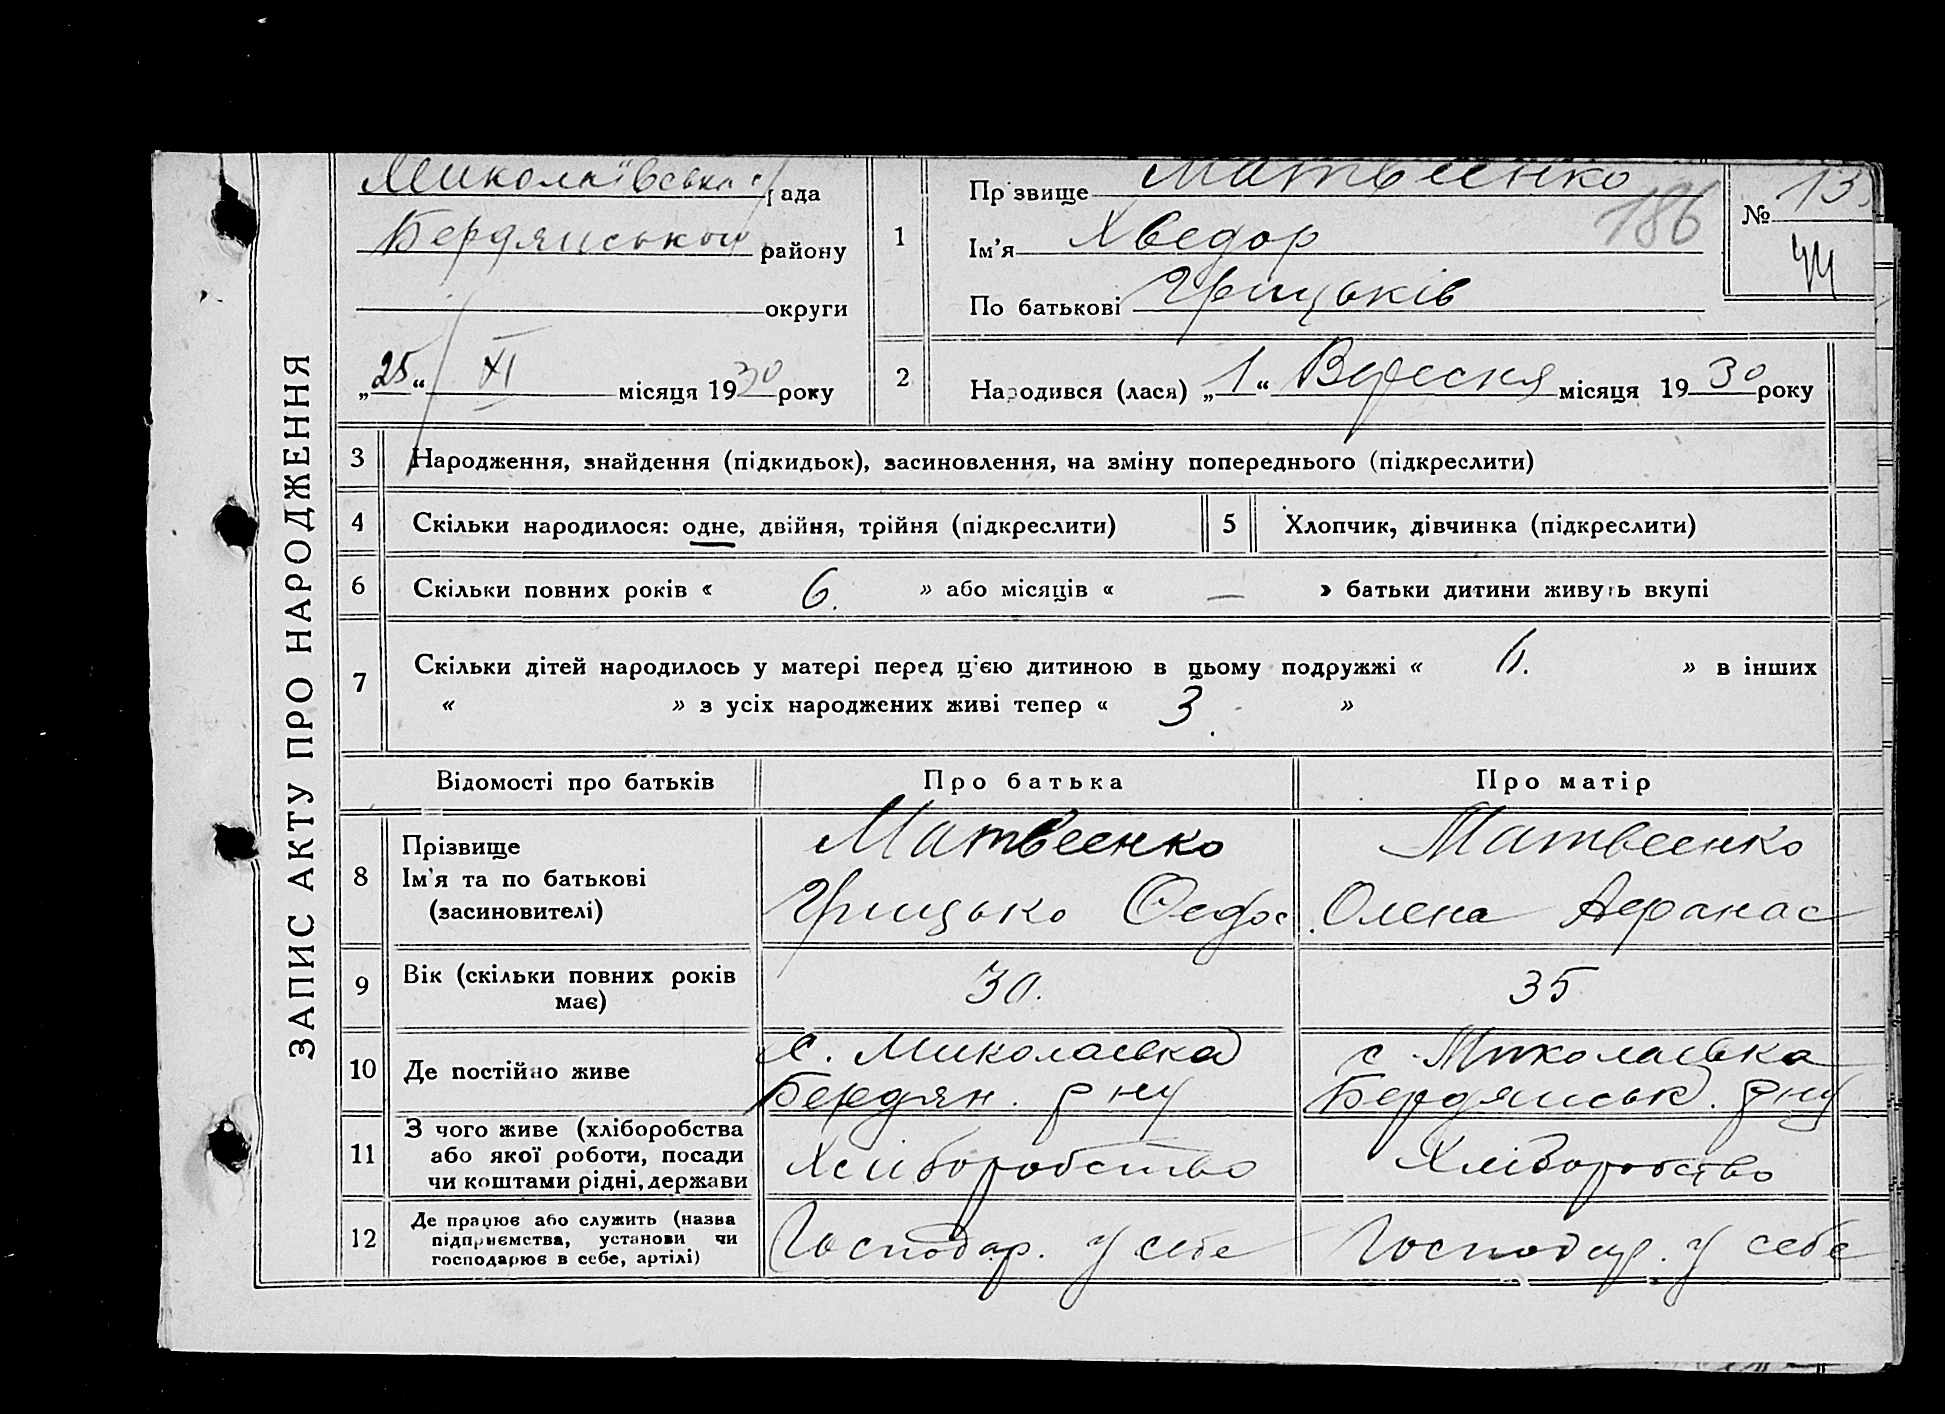 ЗАПИС АКТУ ПРО НАРОДЖЕННЯ
Миколаївська рада
Бердянського району
округи
„25“ XI місяця 1930 року
1
Прізвище Матвеенко
Ім'я Хведор
По батькові Грицьків
186
№ 13
44
2
Народився (лася) „1“ Вересня місяця 1930 року
3 Народження, знайдення (підкидьок), засиновлення, на зміну попереднього (підкреслити)
4 Скільки народилося: одне, двійня, трійня (підкреслити)
5 Хлопчик, дівчинка (підкреслити)
6 Скільки повних років « 6. » або місяців « — » батьки дитини живуть вкупі
7 Скільки дітей народилось у матері перед ц'єю дитиною в цьому подружжі « » в інших
« » з усіх народжених живі тепер « 3. »
Відомості про батьків Про батька Про матір
8
Прізвище
Ім'я та по батькові
(засиновителі)
Матвеенко
Грицько Федос
Матвеенко
Олена Афанас
9
Вік (скільки повних років
має)
30.
35
10 Де постійно живе
с. Миколаевка
Бердян. рну
с. Миколаевка
Бердянськ. рну
11
З чого живе (хліборобства
або якої роботи, посади
чи коштами рідні, держави
Хліборобство
Хліборобство
12
Де працює або служить (назва
підприємства, установи чи
господарює в себе, артілі)
Господар. у себе
Господар. у себе